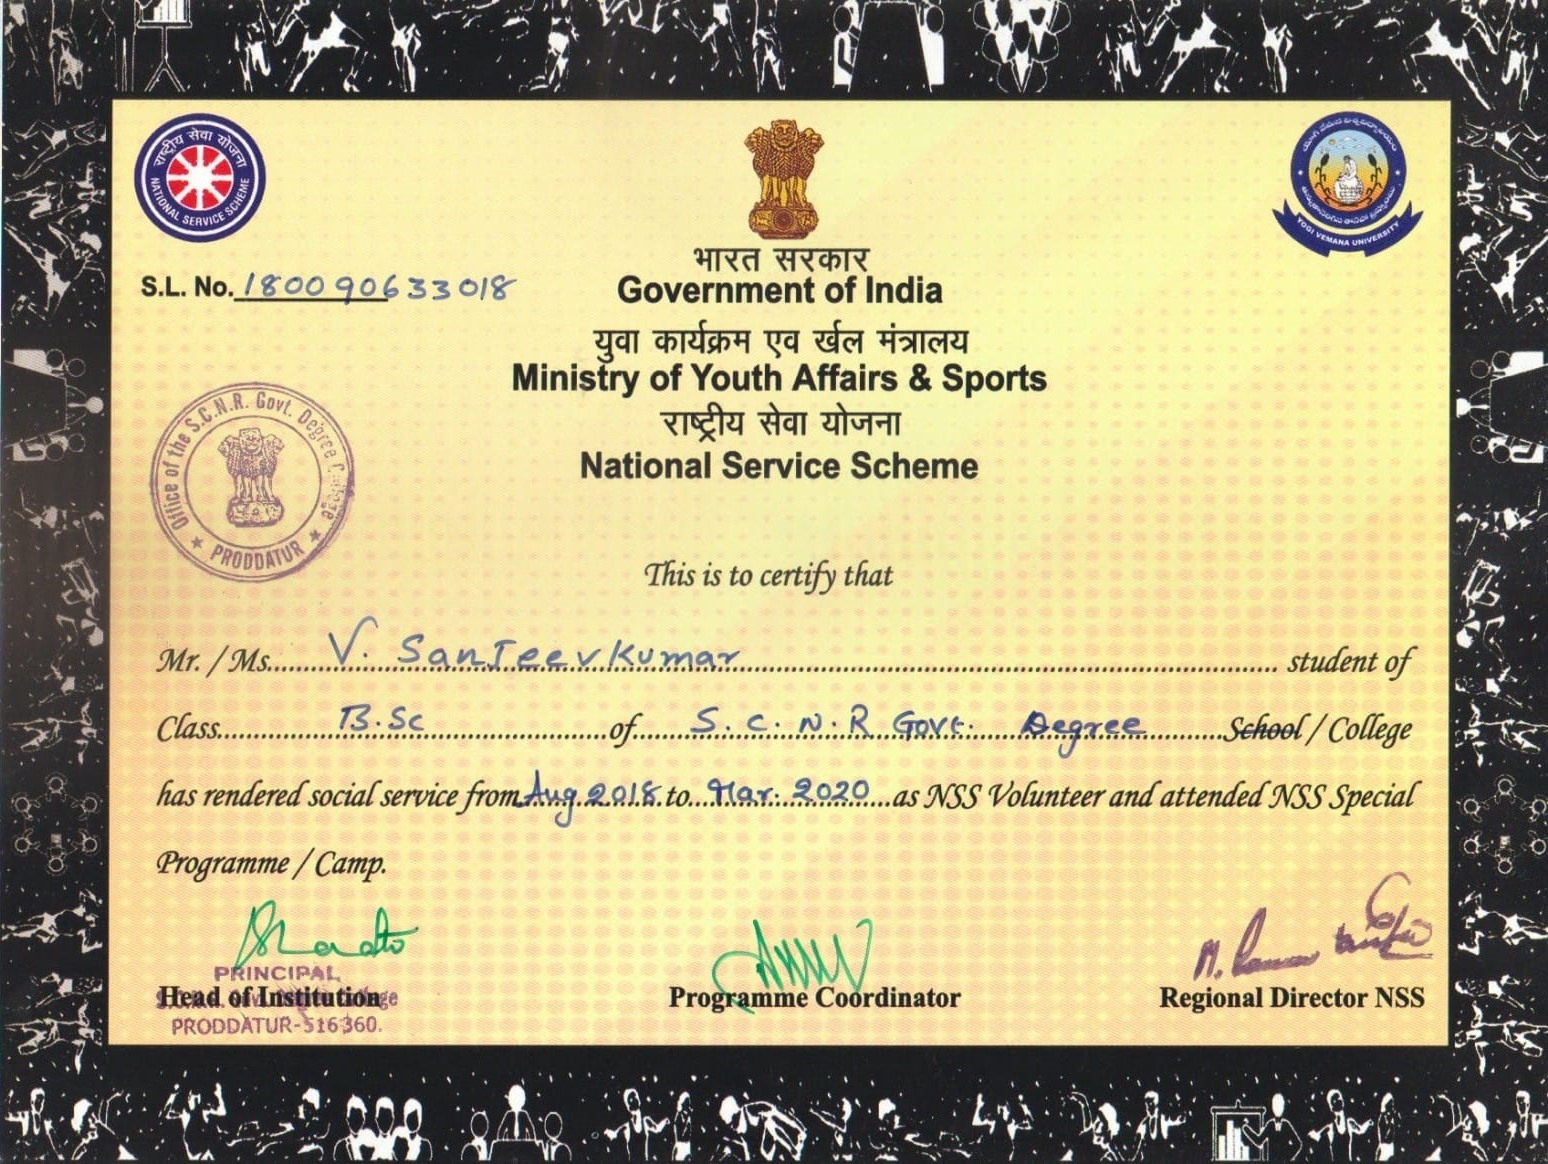 राष्ट्रीय सेवा योजना
NATIONAL SERVICE SCHEME
YOGI VEMANA UNIVERSITY
S.L. No. 180090633018
भारत सरकार
Government of India
युवा कार्यक्रम एव र्खल मंत्रालय
Ministry of Youth Affairs & Sports
राष्ट्रीय सेवा योजना
National Service Scheme
Office of the S.C.N.R. Govt. Degree College
★ PRODDATUR ★
This is to certify that
Mr. / Ms. V. SanJeevkumar student of
Class B.Sc of S.C.N.R Govt. Degree School / College
has rendered social service from Aug 2018 to Mar. 2020 as NSS Volunteer and attended NSS Special
Programme / Camp.
PRINCIPAL
Head of Institution
PRODDATUR-516360.
Programme Coordinator
Regional Director NSS